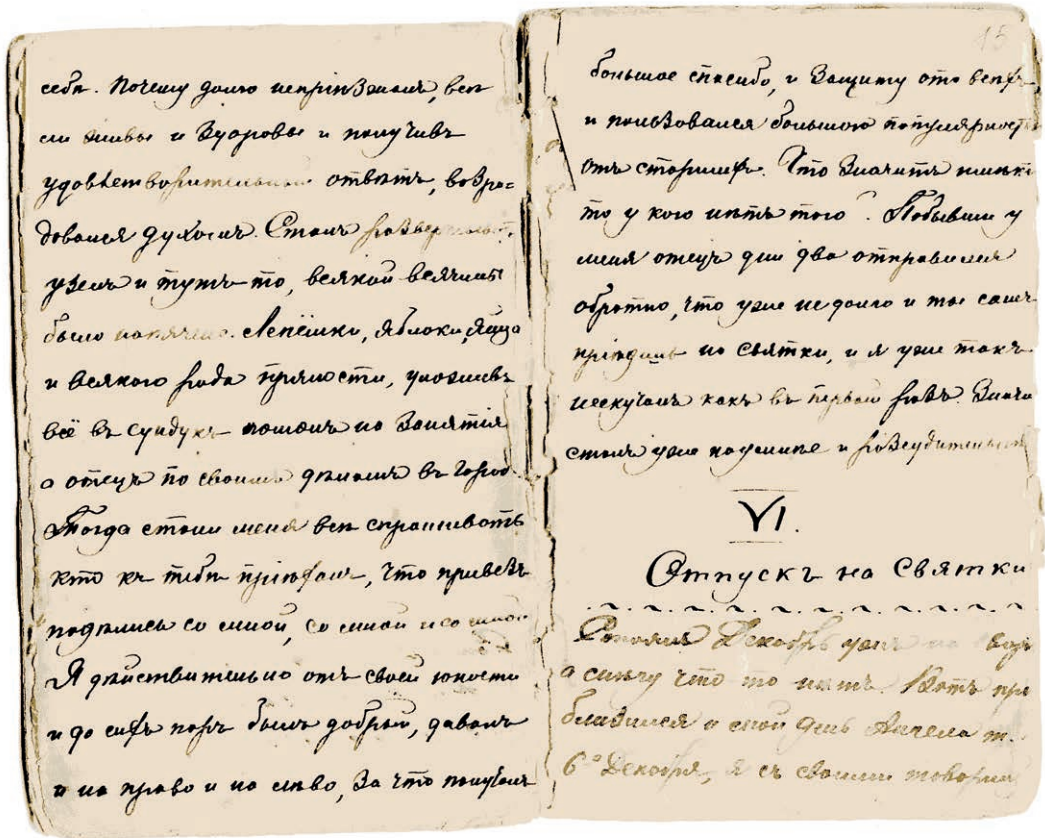 себя. Почему долго непріѣзжалъ, всѣ
ли живы и здоровы и получивъ
удовлетворительный отвѣтъ, возра=
довался духомъ. Сталъ развертывать
узелъ и тутъ-то, всякой всячины
было напячено. Лепёшки, яблоки, яйца
и всякого рода пряности, уложивъ
всё въ сундукъ пошолъ на занятія
а отецъ по своимъ дѣламъ въ город
Тогда стали меня всѣ спрашивать
кто къ тебѣ пріѣхалъ, что привезъ
подѣлись со мной, со мной и со мной
Я дѣйствительно отъ своей юности
и до сихъ поръ былъ добрый, давалъ
и на право и на лѣво, за что получалъ
15
большое спасибо, и защиту ото всѣхъ
и пользовался большою популярност
отъ старшихъ. Что значитъ
то у кого нѣтъ того. Побывши у
меня отецъ дни два отправился
обратно, что уже не долго и ты самъ
пріѣдишь на святки, и я уже такъ
нескучалъ какъ въ первый разъ. Значи
сталъ уже поумнѣе и разсудительный
VI.
Отпускъ на Святки
Декабрь уже на
а снѣгу что то нѣтъ. Вотъ при
ближился и мой день Ангела т.
6го Декабря, я съ своими товарищ